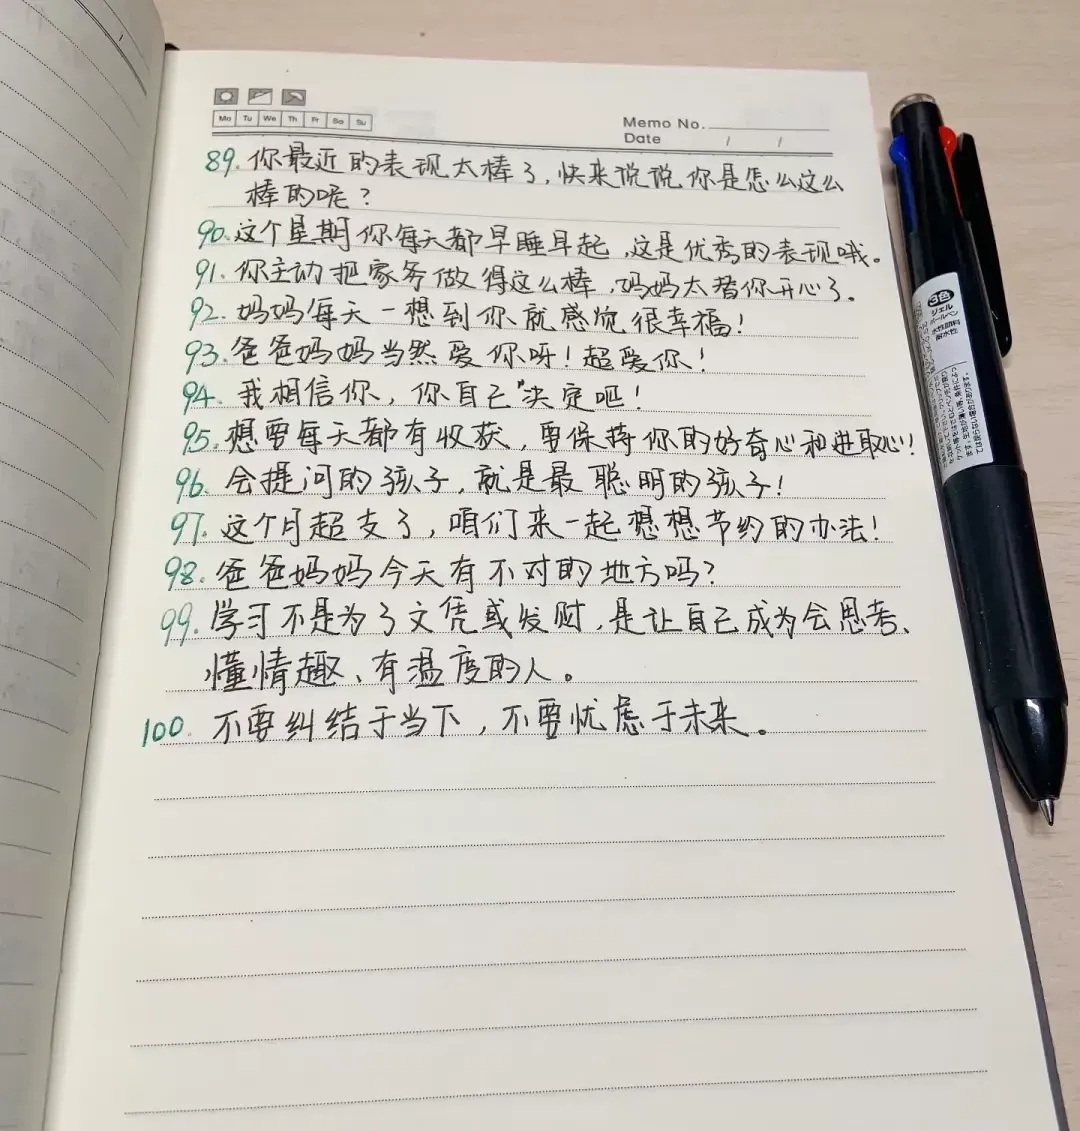 Mo Tu We Th Fr Sa Su
Memo No.
Date / /
89. 你最近的表现太棒了,快来说说你是怎么这么
棒的呢?
90. 这个星期你每天都早睡早起,这是优秀的表现哦。
91. 你主动把家务做得这么棒,妈妈太替你开心了。
92. 妈妈每天一想到你就感觉很幸福!
93. 爸爸妈妈当然爱你呀!超爱你!
94. 我相信你,你自己决定吧!
95. 想要每天都有收获,要保持你的好奇心和进取心!
96. 会提问的孩子,就是最聪明的孩子!
97. 这个月超支了,咱们来一起想想节约的办法!
98. 爸爸妈妈今天有不对的地方吗?
99. 学习不是为了文凭或发财,是让自己成为会思考、
懂情趣、有温度的人。
100. 不要纠结于当下,不要忧虑于未来。
3色
ジェル
ボールペン
水性顔料
耐水性